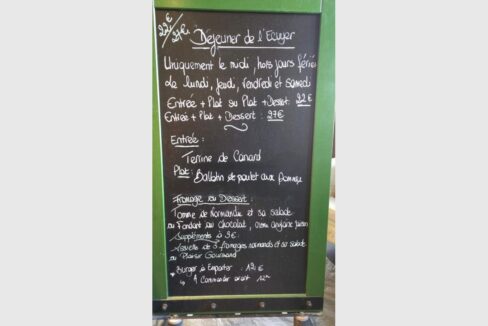 22€
27€
Déjeuner de l'Ecuyer
Uniquement le midi, hors jours fériés
Le lundi, jeudi, vendredi et samedi
Entrée + Plat ou Plat + Dessert : 22€
Entrée + Plat + Dessert : 27€
Entrée :
Terrine de Canard
Plat : Ballotin de poulet aux pommes
Fromage ou Dessert :
Tomme de Normandie et sa salade
ou Fondant au chocolat, crème anglaise
Suppléments à 3€ :
Assiette de 3 fromages normands et sa salade
ou Plaisir Gourmand
* Burger à Emporter : 12€
↳ A Commander avant 12H